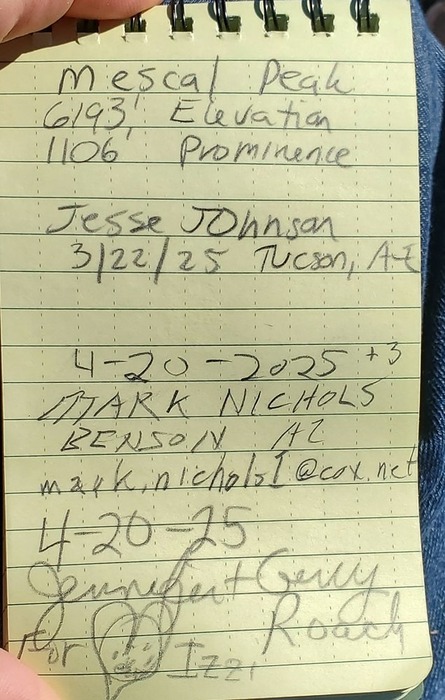 Mescal Peak
6193' Elevation
1106' Prominence
Jesse Johnson
3/22/25 Tucson, AZ
4-20-2025 +3
MARK NICHOLS
BENSON AZ
mark.nichols1@cox.net
4-20-25
Jennifer + Gerry
Roach
For Izzi